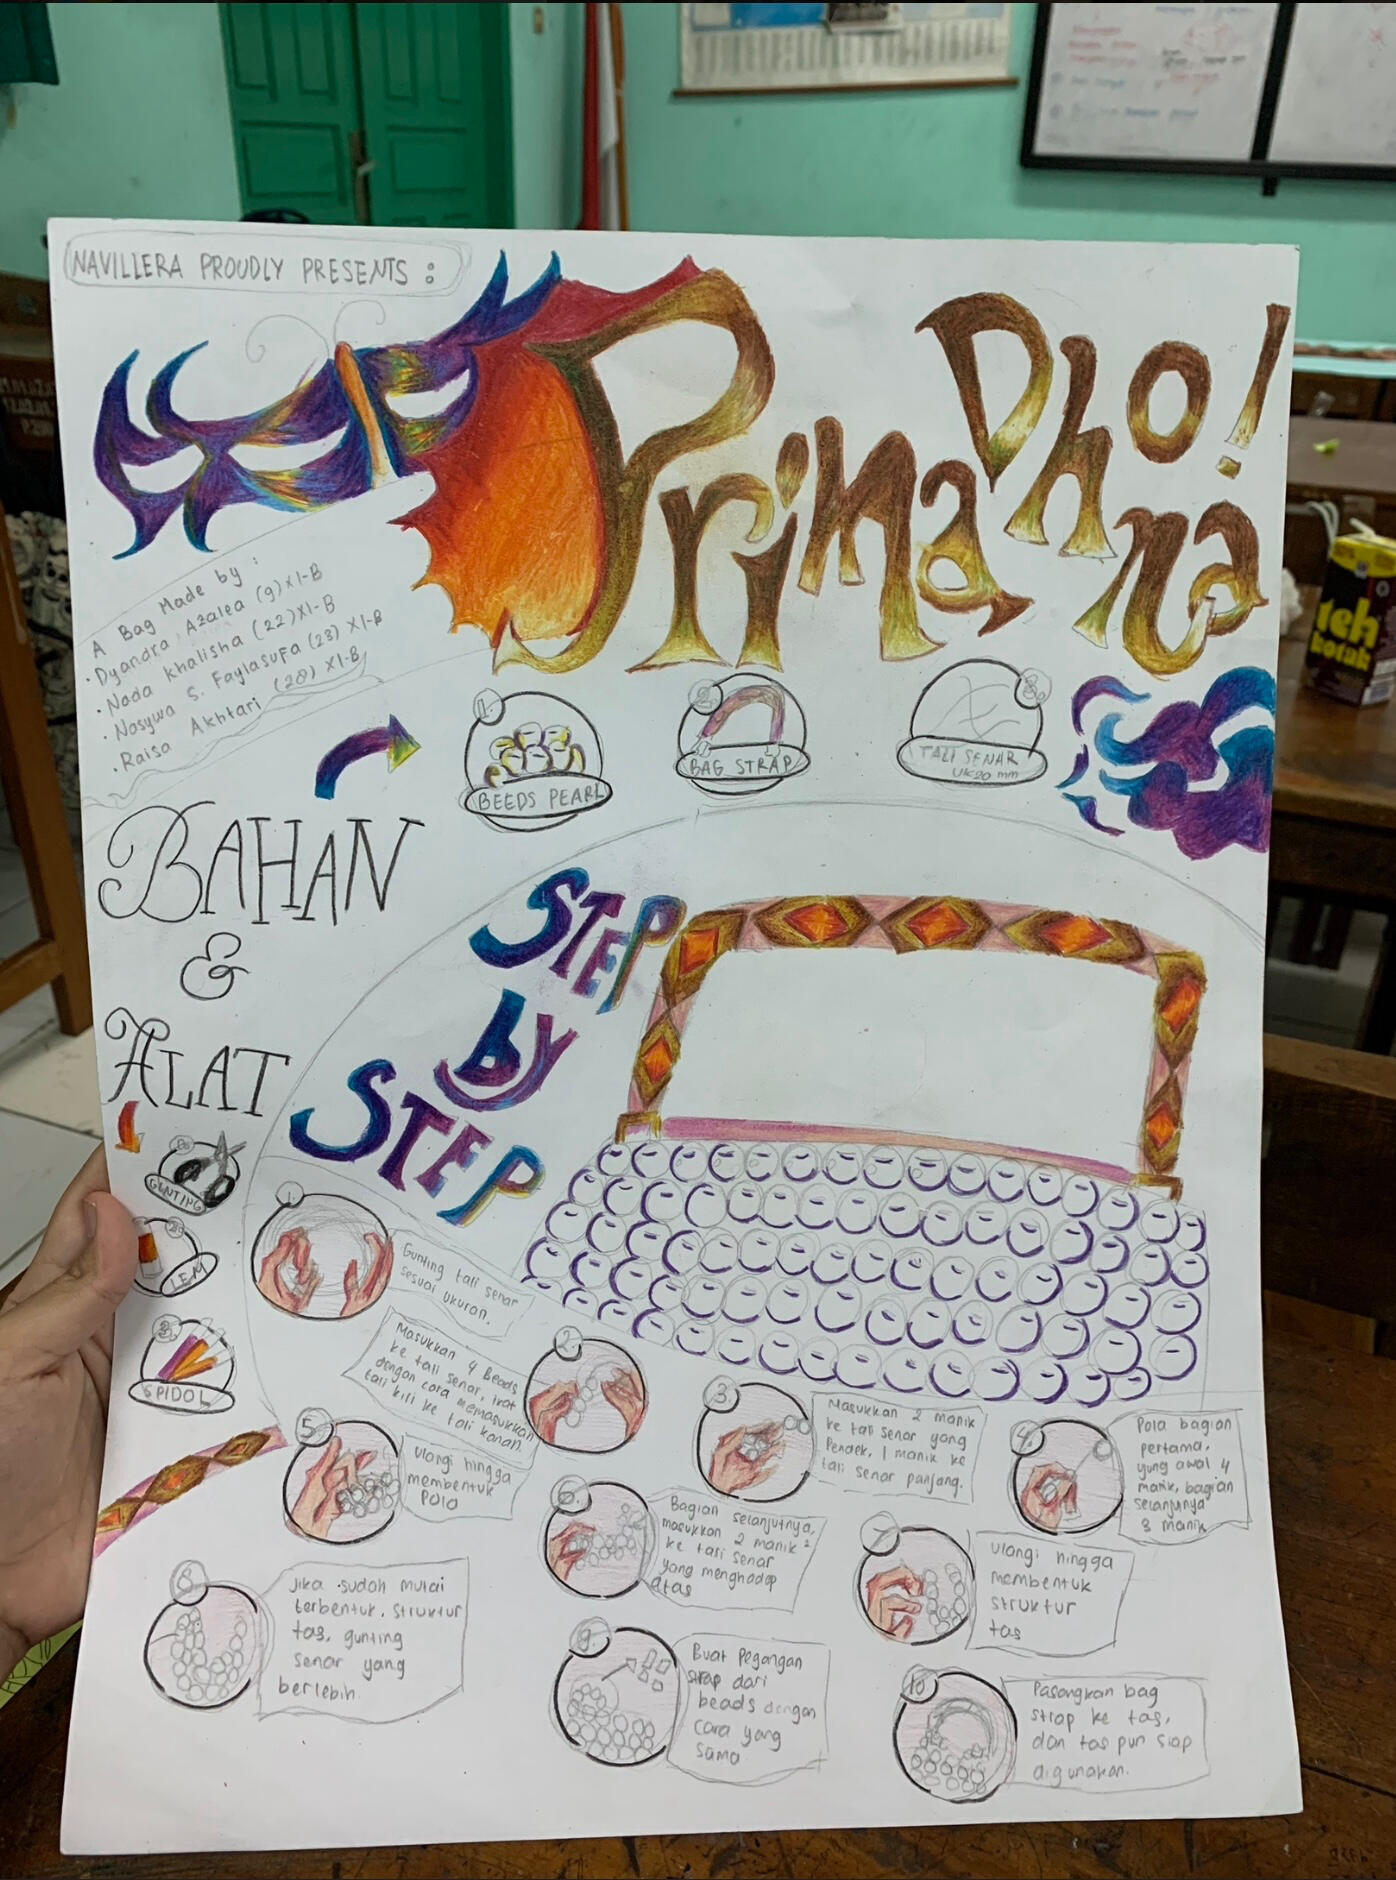 NAVILLERA PROUDLY PRESENTS :
PrimaDhona!
A Bag Made by :
• Dyandra Azalea (9) XI-B
• Nada Khalisha (22) XI-B
• Nasywa S. Faylasufa (23) XI-B
• Raisa Akhtari (28) XI-B
1.
BEEDS PEARL
2.
BAG STRAP
3.
TALI SENAR
UK 20 mm
BAHAN
&
ALAT
GUNTING
LEM
3.
SPIDOL
STEP
by
STEP
1.
Gunting tali senar
sesuai ukuran.
2.
Masukkan 4 Beads
ke tali senar, ikat
dengan cara memasukkan
tali kiri ke tali kanan.
3.
Masukkan 2 manik
ke tali senar yang
Pendek, 1 manik ke
tali senar panjang.
4.
Pola bagian
pertama,
yung awal 4
manik, bagian
selanjunya
3 manik
5
Ulangi hingga
membentuk
Pola
6.
Bagian selanjutnya,
masukkan 2 manik²
ke tali senar
yang menghadap
atas
7
Ulangi hingga
membentuk
struktur
tas
8
Jika sudah mulai
terbentuk, struktur
tas, gunting
senar yang
berlebih.
9.
Buat Pegangan
strap dari
beads dengan
cara yang
sama
10
Pasangkan bag
strap ke tas,
dan tas pun siap
digunakan.
teh
kotak